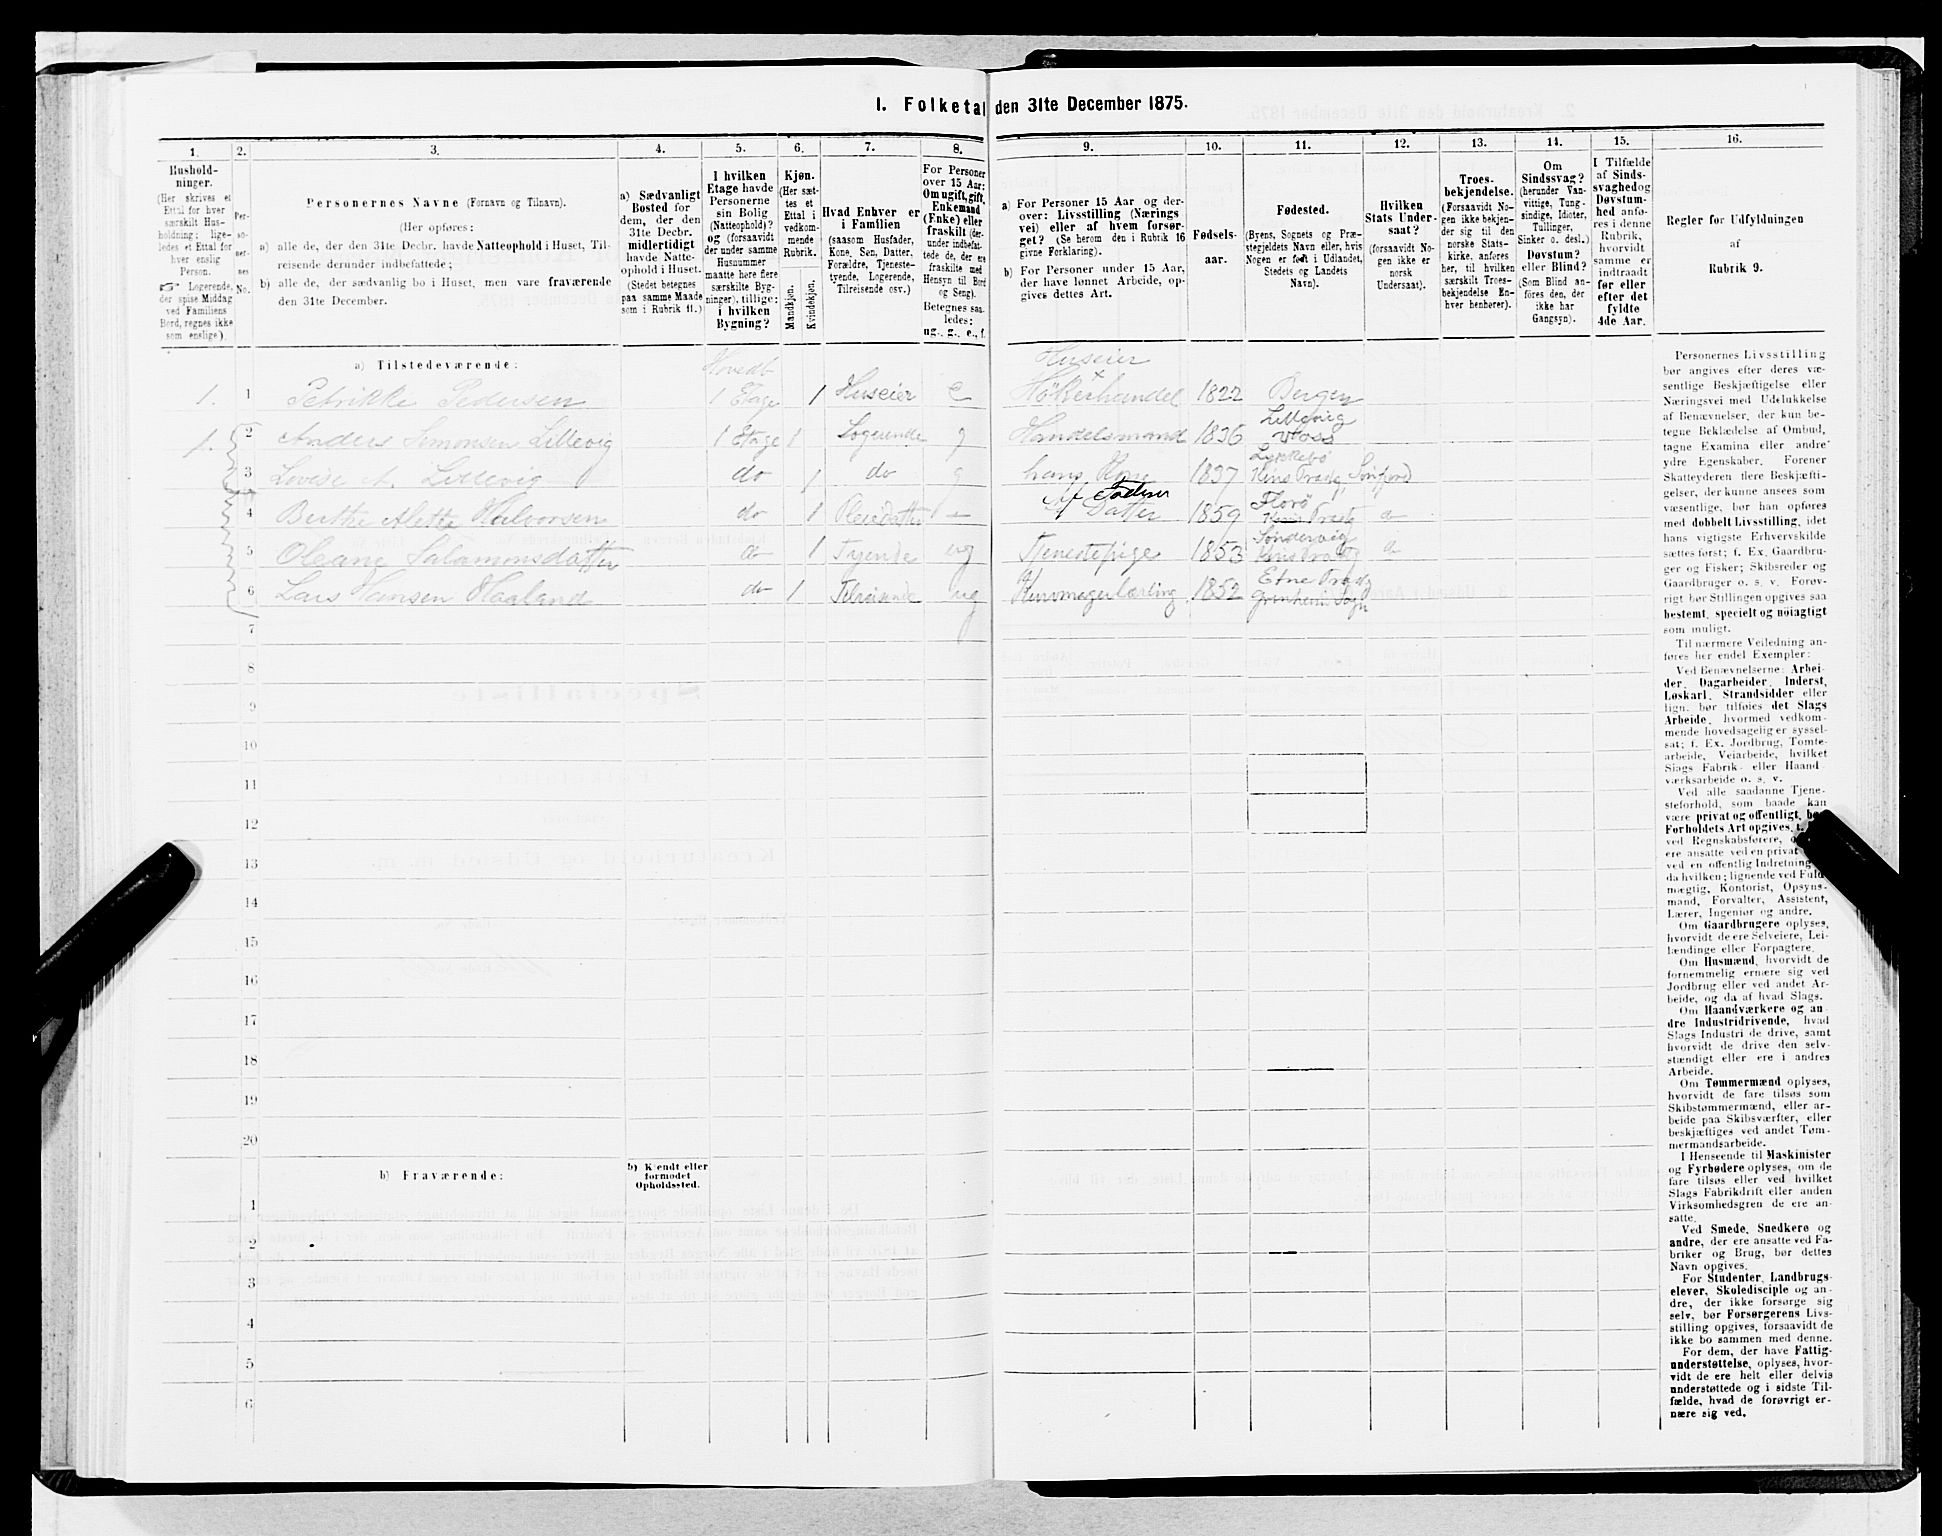 I. Folketal den 31te December 1875.
1. 2. 3. 4. 5. 6. 7. 8. 9. 10. 11. 12. 13. 14. 15. 16.
Husholdninger.
(Her skrives et
Ettal for hver
særskilt Hus-
holdning; lige-
ledes et Ettal for
hver enslig
Person.
Logerende,
der spise Middag
ved Familiens
Bord, regnes ikke
som enslige).
Per-
so-
ner-
nes
No.
Personernes Navne (Fornavn og Tilnavn).
(Her opføres:
a) alle de, der den 31te Decbr. havde Natteophold i Huset, Til-
reisende derunder indbefattede;
b) alle de, der sædvanlig bo i Huset, men vare fraværende
den 31te December.
a) Sædvanligt
Bosted for
dem, der den
31te Decbr.
midlertidigt
havde Natte-
ophold i Huset.
(Stedet betegnes
paa samme Maade
som i Rubrik 11.)
I hvilken
Etage havde
Personerne
sin Bolig
(Natteophold)?
og (forsaavidt
der under samme
Husnummer
maatte høre flere
særskilte Byg-
ninger), tillige:
i hvilken
Bygning?
Kjøn.
(Her sæt-
tes et
Ettal i
vedkom-
mende
Rubrik.
Mandkjøn.
Kvindekjøn.
Hvad Enhver er
i Familien
(saasom Husfader,
Kone, Søn, Datter,
Forældre, Tjeneste-
tyende, Logerende,
Tilreisende osv.)
For Personer
over 15 Aar:
Om ugift, gift,
Enkemand
(Enke) eller
fraskilt (der-
under indbefat-
tede de, der ere
fraskilte med
Hensyn til Bord
og Seng).
Betegnes saa-
ledes:
ug., g., e., f.
a) For Personer 15 Aar og der-
over: Livsstilling (Nærings
vei) eller af hvem forsør-
get? (Se herom den i Rubrik 16
givne Forklaring).
b) For Personer under 15 Aar,
der have lønnet Arbeide, op-
gives dettes Art.
Fødsels-
aar.
Fødested.
(Byens, Sognets og Præ-
stegjeldets Navn eller, hvis
Nogen er født i Udlandet,
Stedets og Landets
Navn).
Hvilken
Stats Under-
saat?
(forsaavidt No-
gen ikke er
norsk
Undersaat).
Troes-
bekjendelse.
(Forsaavidt No-
gen ikke bekjen-
der sig til den
norske Stats-
kirke, anføres
her, til hvilken
særskilt Troes-
bekjendelse En-
hver henhører).
Om
Sindssvag?
(herunder Van-
vittige, Tung-
sindige, Idioter,
Tullinger,
Sinker o. desl.)
Døvstum?
eller Blind?
(Som Blind an-
føres den, der
ikke har
Gangsyn).
I Tilfælde
af Sinds-
svaghed og
Døvstum-
hed anfø-
res i denne
Rubrik,
hvorvidt
samme er
indtraadt
før eller
efter det
fyldte
4de Aar.
Regler for Udfyldningen
af
Rubrik 9.
a) Tilstedeværende: Hovedb Huseier
1. 1 Petrikke Pedersen 1 Etage 1 Huseier e Høkerhandel 1822 Bergen
Lillevig
1. 2 Anders Simonsen Lillevig 1 Etage 1 Logerende g Handelsmand 1836 Voss
3 Lovise A. Lillevig do 1 do g hans Kone 1837
Florø
4 Berthe Alette Halvorsen do 1 Datter 1859
Søndervig
5 Oleane Salamonsdatter do 1 Tyende ug Tjenestepige 1853
Etne Prstg
6 Lars Hansen Haaland do 1 Tilreisende ug 1852 Sogn
7
8
9
10
11
12
13
14
15
16
17
18
19
20
b) Fraværende:
b) Kjendt eller
formodet
Opholdssted.
1
2
3
4
5
6
Personernes Livsstilling
bør angives efter deres væ-
sentlige Beskjæftigelse eller
Næringsvei med Udelukkelse
af Benævnelser, der kun be-
tegne Beklædelse af Ombud,
tagne Examina eller andre
ydre Egenskaber. Forener
Skatteyderen flere Beskjæfti-
gelser, der kunne ansees som
væsentlige, bør han opføres
med dobbelt Livsstilling, idet
hans vigtigste Erhvervskilde
sættes først; f. Ex. Gaardbru-
ger og Fisker; Skibsreder og
Gaardbruger o. s. v. Forøv-
rigt bør Stillingen opgives saa
bestemt, specielt og nøiagtigt
som muligt.
Til nærmere Veiledning an-
føres her endel Exempler:
Ved Benævnelserne: Arbei-
der, Dagarbeider, Inderst,
Løskarl, Strandsidder eller
lign. bør tilføies det Slags
Arbeide, hvormed vedkom-
mende hovedsagelig er syssel-
sat; f. Ex. Jordbrug, Tomte-
arbeide, Veiarbeide, hvilket
Slags Fabrik- eller Haand-
værksarbeide o. s. v.
Ved alle saadanne Tjene-
steforhold, som baade kan
være privat og offentligt, bør
Forholdets Art opgives,
ved Regnskabsførere,
ere ansatte ved en privat
ved en offentlig Indretning
da hvilken; lignende ved Fuld-
mægtig, Kontorist, Opsyns-
mand, Forvalter, Assistent,
Lærer, Ingeniør og andre.
Om Gaardbrugere oplyses,
hvorvidt de ere Selveiere, Lei-
lændinge eller Forpagtere.
Om Husmænd, hvorvidt de
fornemmelig ernære sig ved
Jordbrug eller ved andet Ar-
beide, og da af hvad Slags.
Om Haandværkere og an-
dre Industridrivende, hvad
Slags Industri de drive, samt
hvorvidt de drive den selv-
stændigt eller ere i andres
Arbeide.
Om Tømmermænd oplyses,
hvorvidt de fare tilsøs som
Skibstømmermænd, eller ar-
beide paa Skibsværfter, eller
beskjæftiges ved andet Tøm-
mermandsarbeide.
I Henseende til Maskinister
og Fyrbødere oplyses, om de
fare tilsøs eller ved hvilket
Slags Fabrikdrift eller anden
Virksomhedsgren de ere an-
satte.
Ved Smede, Snedkere og
andre, der ere ansatte ved Fa-
briker og Brug, bør dettes
Navn opgives.
For Studenter, Landbrugs-
elever, Skoledisciple og an-
dre, der ikke forsørge sig
selv, bør Forsørgerens Livs-
stilling opgives, forsaavidt de
ikke bo sammen med denne.
For dem, der have Fattig-
understøttelse, oplyses, hvor-
vidt de ere helt eller delvis
understøttede og i sidste Til-
fælde, hvad de forøvrigt er-
nære sig ved.